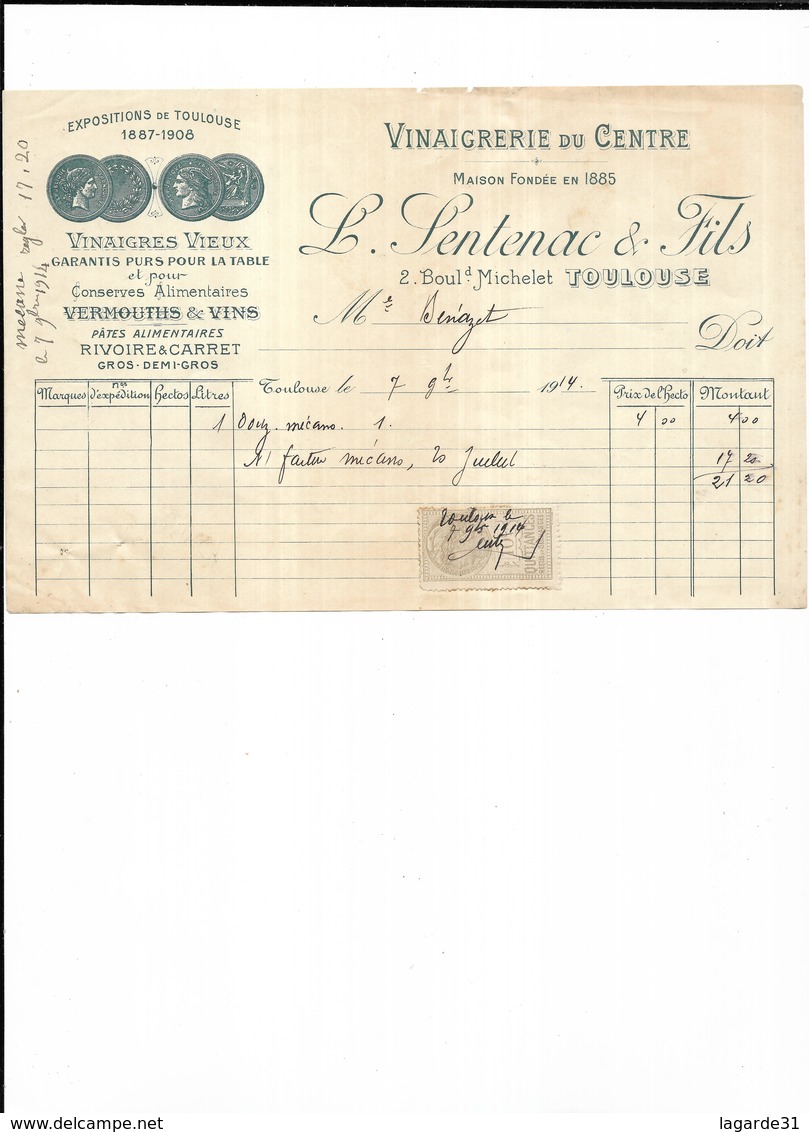 EXPOSITIONS DE TOULOUSE
1887-1908
VINAIGRES VIEUX
GARANTIS PURS POUR LA TABLE
et pour
Conserves Alimentaires
VERMOUTHS & VINS
PÂTES ALIMENTAIRES
RIVOIRE & CARRET
GROS - DEMI-GROS
mecano regler 17.20
le 7 9bre 1914
VINAIGRERIE DU CENTRE
MAISON FONDÉE EN 1885
L. Sentenac & Fils
2. Boul.d Michelet TOULOUSE
Mr Benazet
Doit
Toulouse le 7 9bre 1914.
Marques nos d'expédition Hectos Litres Prix de l'hecto Montant
1 Douz. mécano. 1. 4 00 4 00
N/ factur mécano, 20 Juillet 17 20
21 20
Toulouse le
7 9bre 1914
10c QUITTANCES
lagarde31